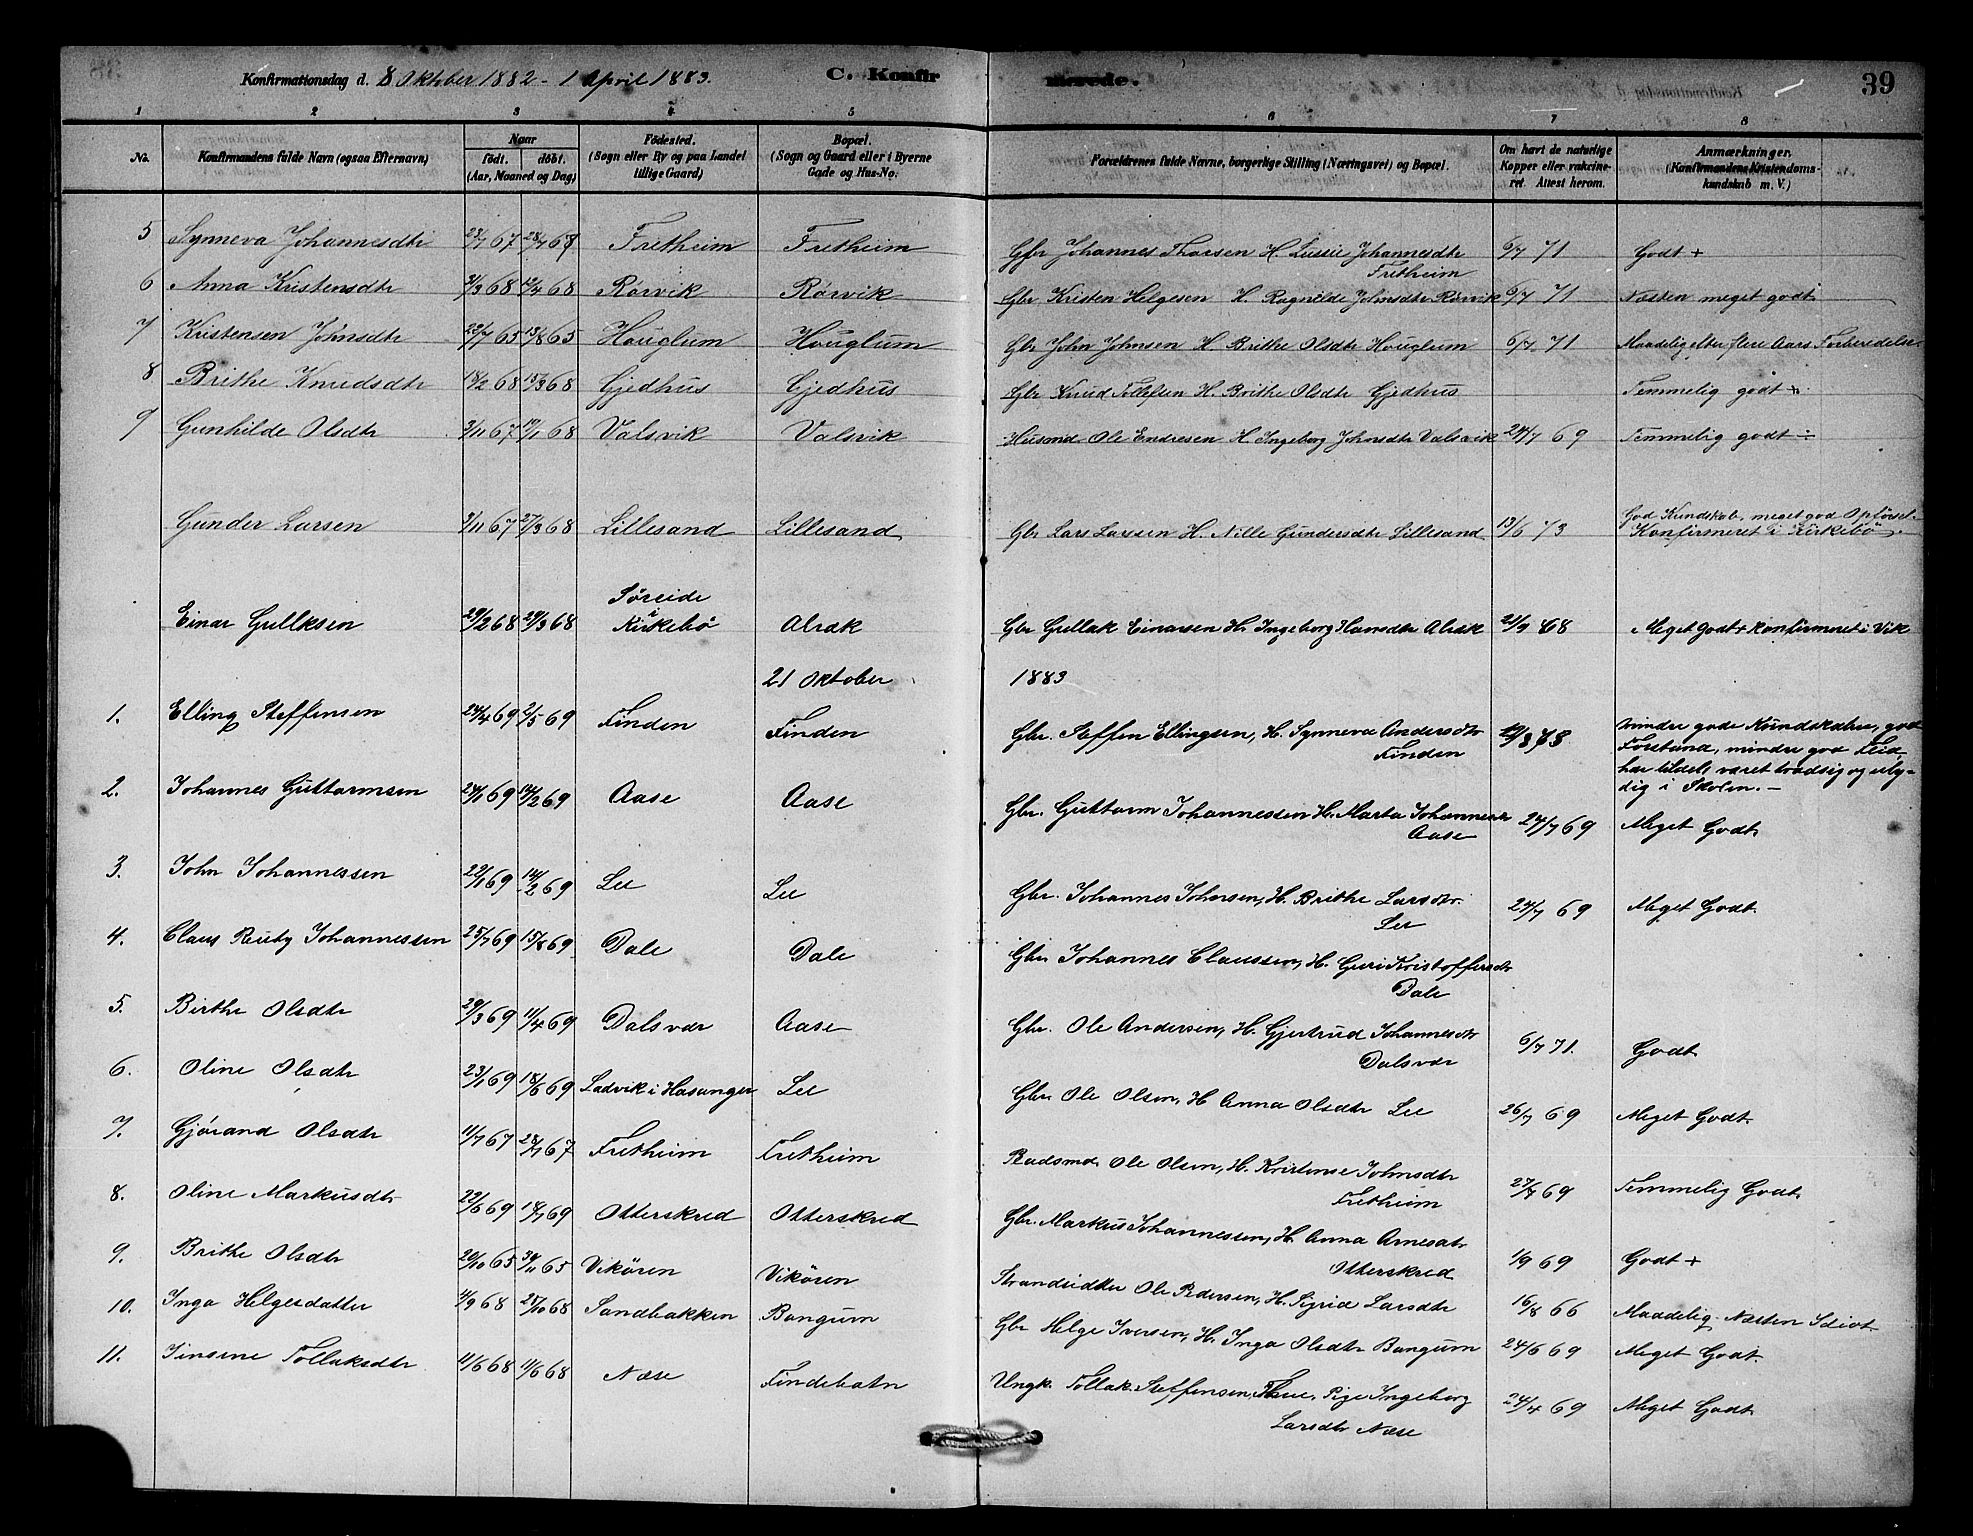 Konfirmationsdag d. 8 Oktober 1882 - 1 April 1883. C. Konfirmerede. 39
1 2 3 4 5 6 7 8
No. Konfirmandens fulde Navn (ogsaa Efternavn) Naar født. døbt. (Aar, Maaned og Dag) Fødested. (Sogn eller By og paa Landet tillige Gaard) Bopæl. (Sogn og Gaard eller i Byerne Gade og Hus-No. Forældrenes fulde Navne, borgerlige Stilling (Næringsvei) og Bopæl. Om havt de naturlige Kopper eller vakcineret. Attest herom. Anmærkninger. (Konfirmandens Kristendomskundskab m. V.)
5 Synneva Johannesdtr 23/7 67 28/7 67 Fretheim Fretheim Gbr Johannes Thorsen H. Lussie Johannesdtr Fretheim 6/7 71 Godt +
6 Anna Kristensdtr 3/3 68 12/4 68 Rørvik Rørvik Gbr Kristen Helgesen H. Ragnilde Johnsdtr Rørvik 6/7 71 Næsten meget godt
7 Kristensen Johnsdtr 22/7 65 13/8 65 Houglum Houglum Gbr John Johnsen H Brithe Olsdtr Houglum 6/7 71 Maadelig efter flere Aars Forberedelse
8 Brithe Knudsdtr 18/2 68 15/3 68 Gjedhus Gjedhus Gbr Knud Tollefsen H. Brithe Olsdtr Gjedhus Temmelig godt +
9 Gunhilde Olsdtr 3/11 67 19/1 68 Valsvik Valsvik Husmd Ole Endresen H Ingeborg Johnsdtr Valsvik 24/7 69 Temmelig godt ÷
Gunder Larsen 3/11 67 27/3 68 Lillesand Lillesand Gbr Lars Larsen H. Nille Gundersdtr Lillesand 13/6 73 God Kundskab, meget god Opførsel. Konfirmeret i Kirkebø.
Einar Gullksen 29/2 68 29/3 68 Søreide i Kirkebø Alrek Gbr Gullak Einarsen H. Ingeborg Hansdtr Alrek 21/9 68 Meget Godt + konfirmeret i Vik
21 Oktober 1883
1. Elling Steffensen 24/4 69 2/5 69 Finden Finden Gbr. Steffen Ellingsen, H. Synneva Andersdtr Finden 19/8 73 mindre gode Kundskaber, god Forstand, mindre god Flid, har tildels været trodsig og ulydig i Skolen. —
2. Johannes Guttormsen 24/1 69 14/2 69 Aase Aase Gbr. Guttorm Johannessen H. Marta Johannesdtr Aase 24/7 69 Meget Godt
3. John Johannessen 22/1 69 14/2 69 Lee Lee Gbr. Johannes Johnsen, H. Brithe Larsdtr. Lee 24/7 69 Meget Godt.
4. Claus Reutz Johannessen 25/7 69 15/8 69 Dale Dale Gbr Johannes Claussen, H. Guri Kristoffersdtr Dale
5. Birthe Olsdtr 29/3 69 11/4 69 Dalsvær Aase Gbr. Ole Andersen, H. Gjertrud Johannesdtr Dalsvær 6/7 71. Godt
6. Oline Olsdtr 23/1 69 18/6 69 Ladvik i Hasanger Lee Gbr Ole Olsen, H Anna Olsdtr Lee 26/7 69 Meget Godt.
7. Gjørand Olsdtr 11/7 67 28/7 67 Fretheim Fretheim Baadsmd. Ole Olsen, H. Kristense Johnsdtr Fretheim 27/7 69 Temmelig Godt
8. Oline Markusdtr 22/6 69 18/7 69 Otterskred Otterskred Gbr. Markus Johannessen, H. Anna Arnesdtr Otterskred 1/9 69 Godt +
9. Brithe Olsdtr 20/10 65 30/11 65 Vikøren Vikøren Strandsidder Ole Pedersen, H. Sigrid Larsdtr 16/8 66 Maadelig. Næsten Idiot
10. Inga Helgesdatter 4/9 68 25/10 68 Sandbakken Bongum Gbr Helge Iversen, H. Inga Olsdtr Bongum 24/6 69 Meget Godt.
11. Jinsine Tollaksdtr 11/6 68 11/6 68 Næse Findebotn Ungk. Tollak Steffensen, Pige Ingeborg Larsdtr Næse 24/4 69 Meget Godt